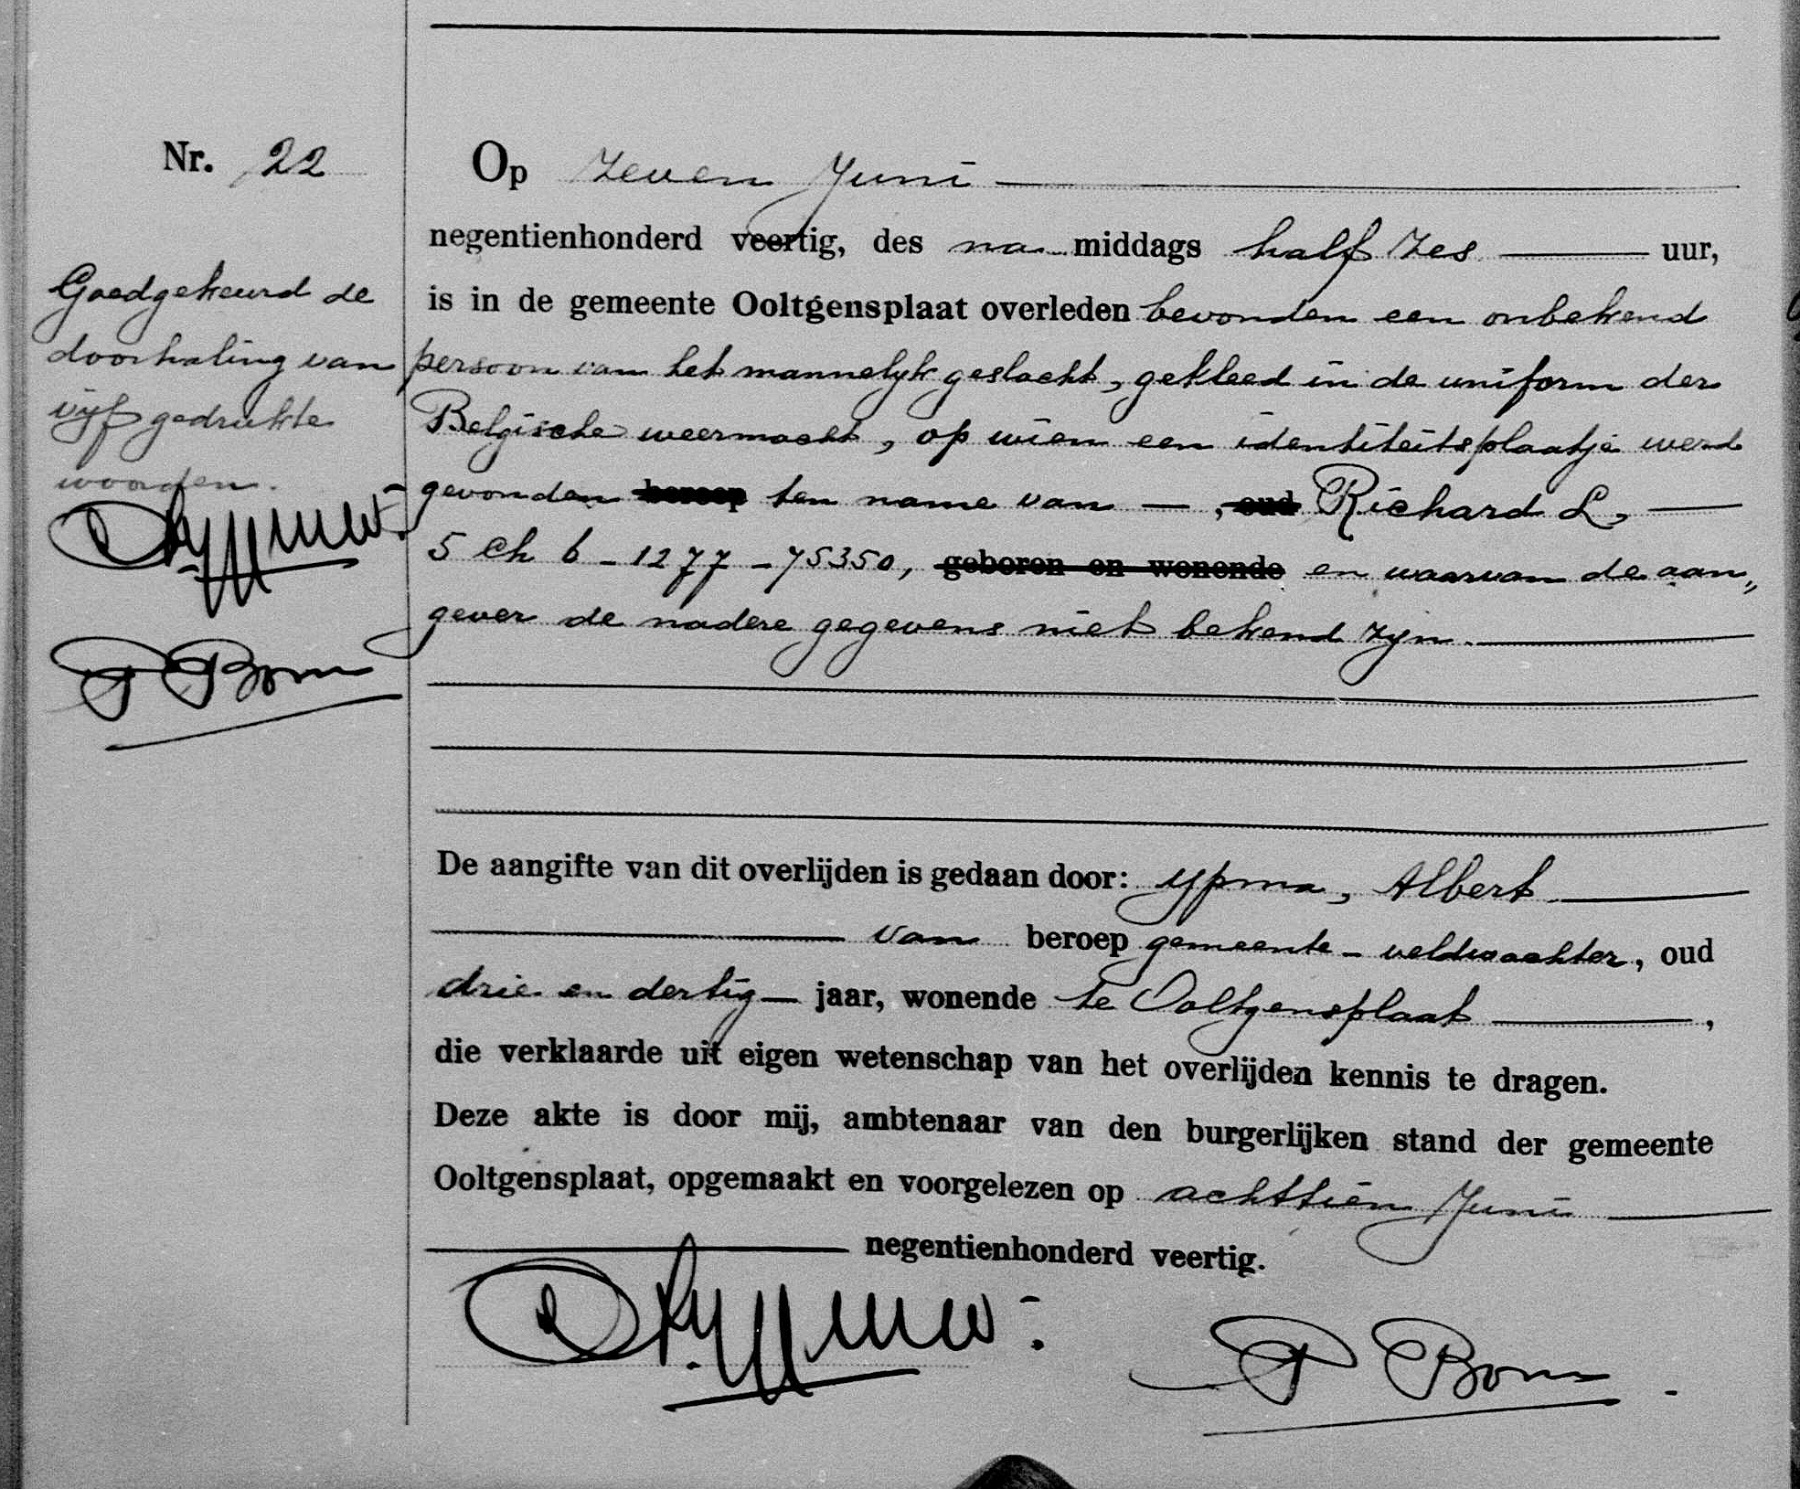 Nr. 22
Goedgekeurd de
doorhaling van
vijf gedrukte
woorden.
P Bom
Op zeven Juni
negentienhonderd veertig, des na middags half zes uur,
is in de gemeente Ooltgensplaat overleden bevonden een onbekend
persoon van het mannelijk geslacht, gekleed in de uniform der
Belgische weermacht, op wien een identiteitsplaatje werd
gevonden beroep ten name van —, oud Richard L,
5 Ch 6 - 1277 - 75350, geboren en wonende en waarvan de aan„
gever de nadere gegevens niet bekend zijn.
De aangifte van dit overlijden is gedaan door: Ypma, Albert
van beroep gemeente-veldwachter, oud
drie en dertig — jaar, wonende te Ooltgensplaat,
die verklaarde uit eigen wetenschap van het overlijden kennis te dragen.
Deze akte is door mij, ambtenaar van den burgerlijken stand der gemeente
Ooltgensplaat, opgemaakt en voorgelezen op achttien Juni
negentienhonderd veertig.
P Bom